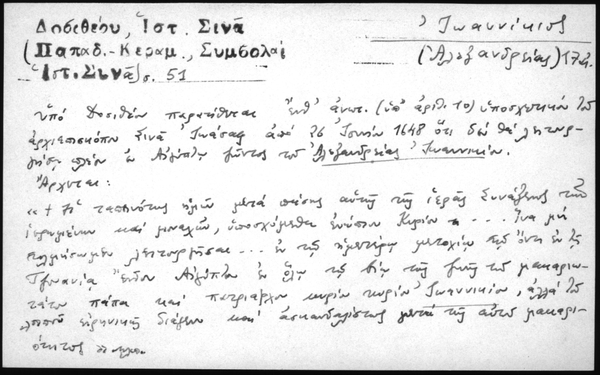 Δοσιθέου, Ἱστ. Σινᾶ
(Παπαδ.-Κεραμ., Συμβολαὶ
Ἱστ. Σινᾶ) σ. 51
Ἰωαννίκιος
(Ἀλεξανδρείας) 17
ὑπὸ Δοσιθέου παρατίθεται ἔνθ' ἀνωτ. (ὑπ' ἀριθ. 10) ὑποσχετικὸν τοῦ
ἀρχιεπισκόπου Σινᾶ Ἰωάσαφ ἀπὸ 26 1648 ὅτι δὲν θὰ λειτουρ-
γήσῃ πλέον ἐν Αἰγύπτῳ ζῶντος τοῦ Ἀλεξανδρείας Ἰωαννικίου.
Ἄρχεται:
« + Ἡ ταπεινότης ἡμῶν μετὰ πάσης αὐτῆς τῆς ἱερᾶς Συνάξεως τῶν
ἱερωμένων καὶ μοναχῶν, ὑποσχόμεθα ἐνώπιον Κυρίου ... ἵνα μὴ
τολμήσωμεν λειτουργῆσαι ... ἐν τῷ ἡμετέρῳ μετοχίῳ τῷ ὄντι ἐν τῇ
Τζουανίᾳ ἔνδον Αἰγύπτου ἐν ὅλῳ τῷ βίῳ τῆς ζωῆς τοῦ μακαριω-
τάτου πάπα καὶ πατριάρχου κυρίου κυρίου Ἰωαννικίου, ἀλλὰ τοῦ
λοιποῦ εἰρηνικῶς διάγειν καὶ ἀσκανδαλίστως μετὰ τῆς αὐτοῦ μακαρι-
ότητος